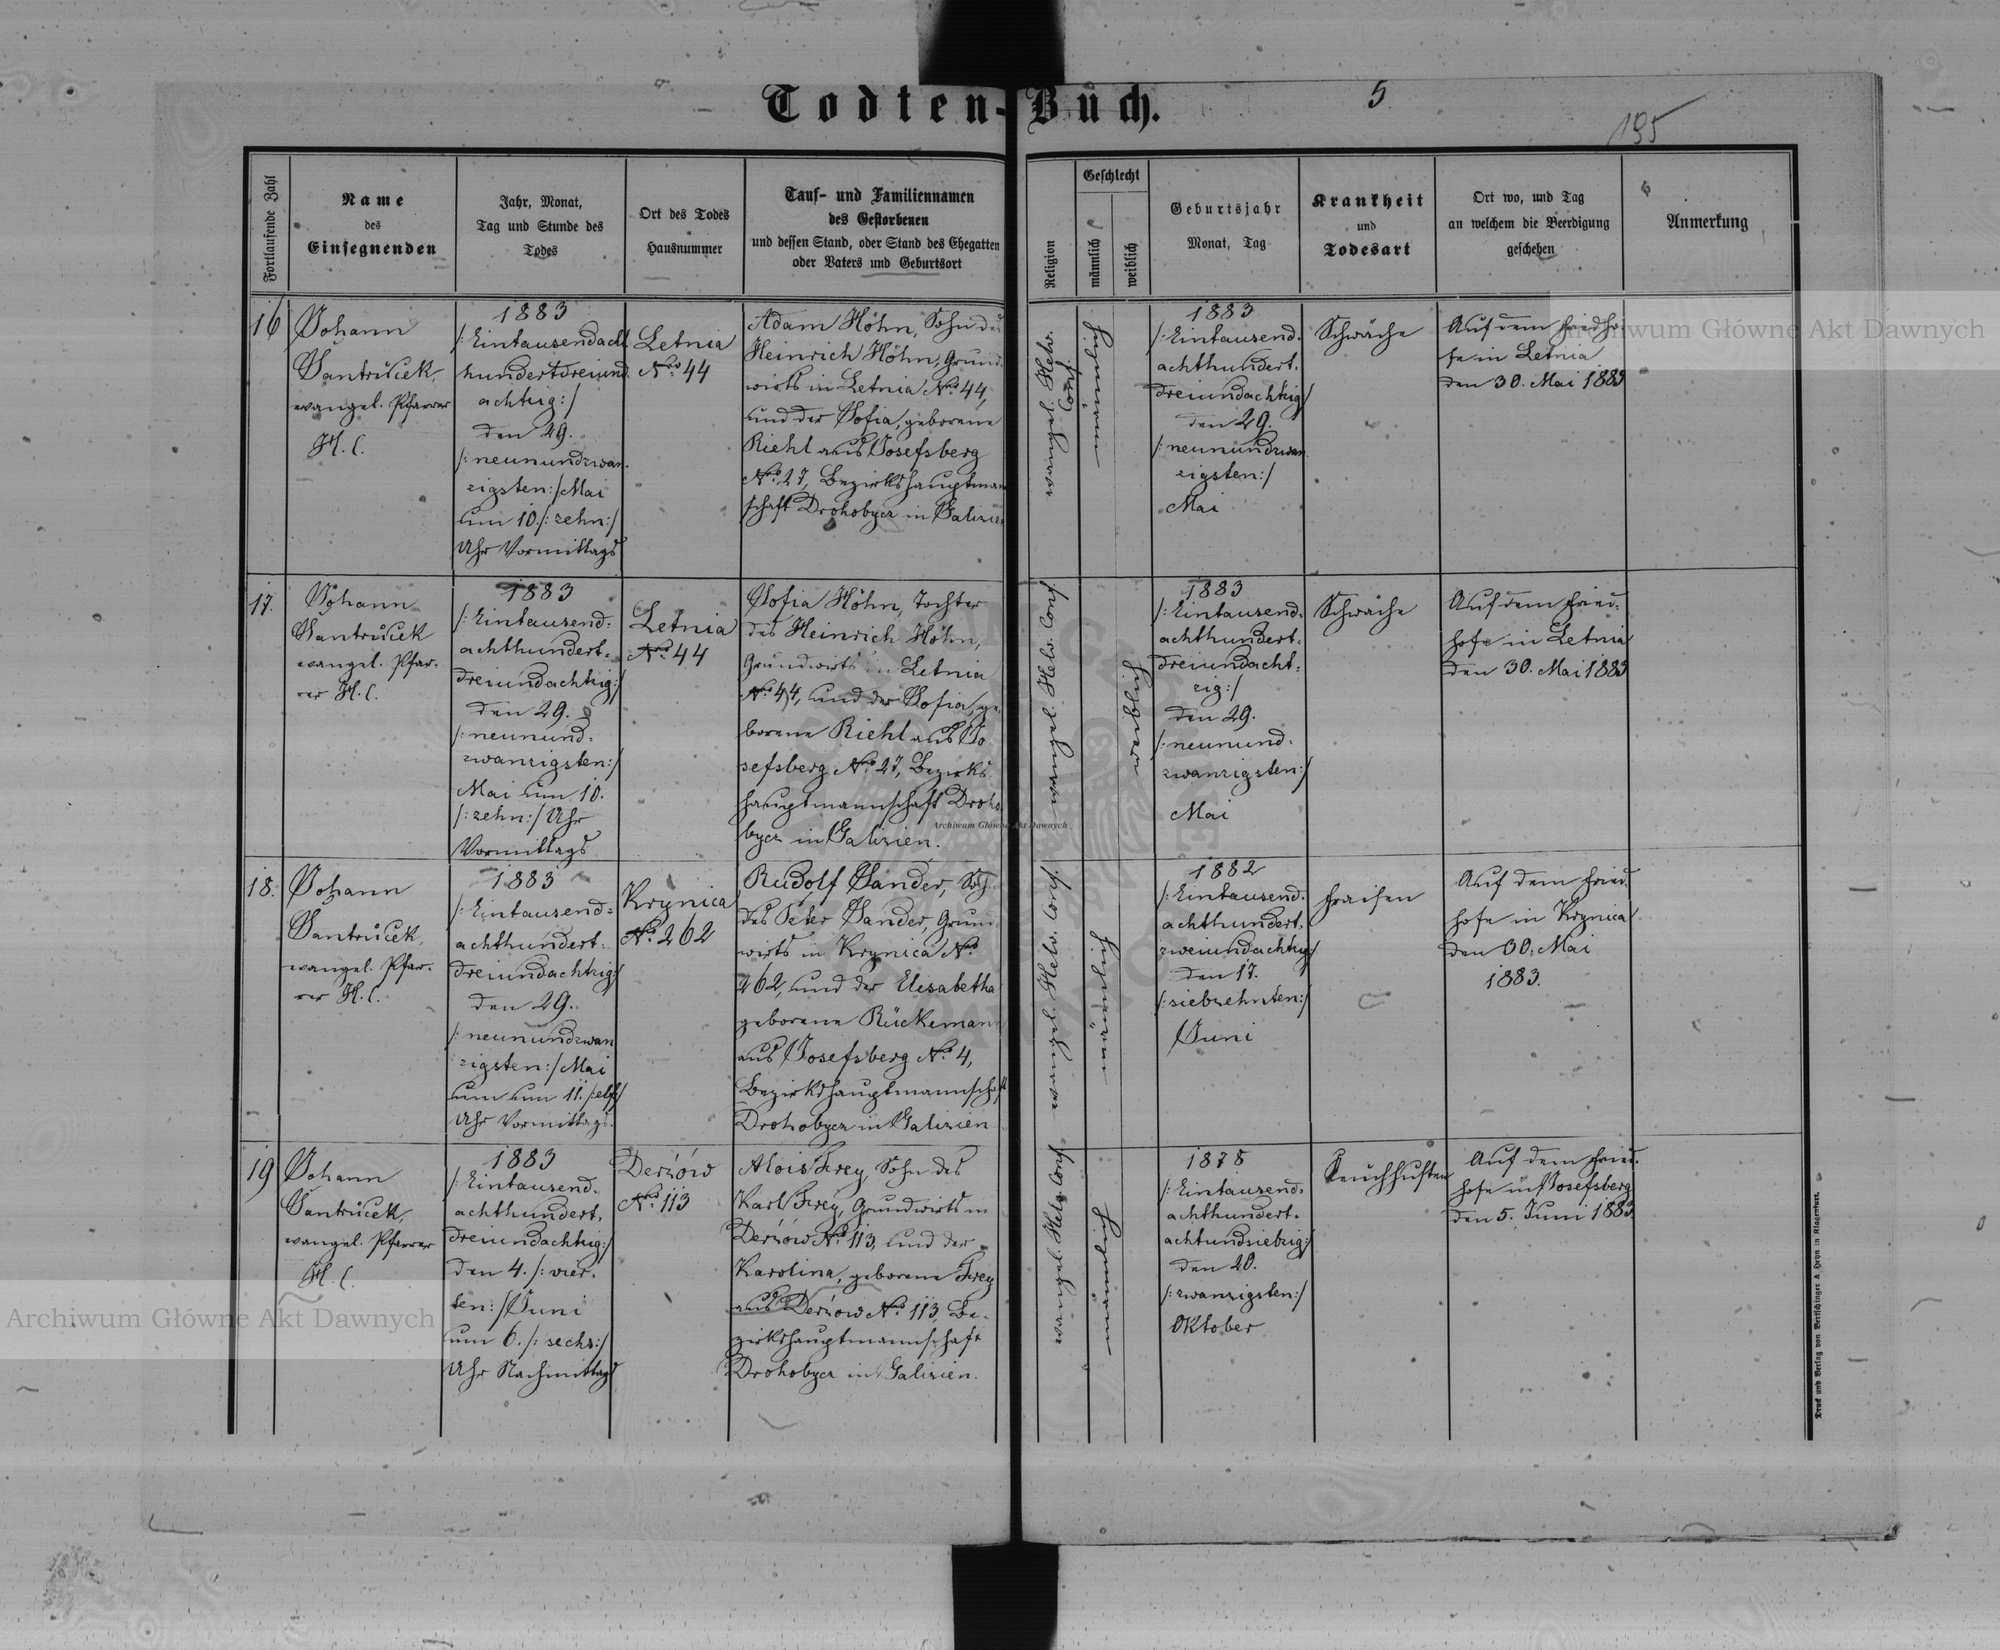 Todten-Buch.
5.
195
Fortlaufende Zahl
Name
des
Einsegnenden
Jahr, Monat,
Tag und Stunde des
Todes
Ort des Todes
Hausnummer
Tauf- und Familiennamen
des Gestorbenen
und dessen Stand, oder Stand des Ehegatten
oder Vaters und Geburtsort
Religion
Geschlecht
männlich
weiblich
Geburtsjahr
Monat, Tag
Krankheit
und
Todesart
Ort wo, und Tag
an welchem die Beerdigung
geschehen
Anmerkung
16
Johann
Jantrůcek,
evangel. Pfarrer
H. C.
1883
/: Eintausendacht
hundertdreiund
achtzig :/
den 29.
/: neunundzwan
zigsten :/ Mai
um 10. /: zehn :/
Uhr Vormittags
Letnia
No. 44
Adam Höhn, Sohn des
Heinrich Höhn, Grund
wirts in Letnia No. 44,
und der Sofia, geborene
Riehl aus Josefsberg
No. 27, Bezirkshauptman
schaft Drohobycz in Galizien
evangel. Helv.
Conf.
Männlich
1883
/: Eintausend.
achthundert.
dreiundachtzig /
den 29.
/: neunundzwan
zigsten :/
Mai
Schwäche
Auf dem Friedho
fe in Letnia
den 30. Mai 1883
17.
Johann
Jantrůcek
evangel. Pfar-
rer H. C.
1883
/: Eintausend:
achthundert:
dreiundachtzig :/
den 29.
/: neunund:
zwanzigsten :/
Mai um 10.
/: zehn :/ Uhr
Vormittags
Letnia
No. 44
Sofia Höhn, Tochter
des Heinrich Höhn,
Grundwirts in Letnia
No. 44, und der Sofia, ge
borene Riehl aus Jo
sefsberg No. 27, Bezirks
hauptmannschaft Droho
bycz in Galizien.
evangel. Helv. Conf.
1883
/: Eintausend:
achthundert:
dreiundacht:
zig :/
den 29.
/: neunund:
zwanzigsten :/
Mai
Schwäche
Auf dem Fried:
hofe in Letnia
den 30. Mai 1883
18.
Johann
Jantrůcek,
evangel. Pfar-
rer H. C.
1883
/: Eintausend:
achthundert:
dreiundachtzig :/
den 29.
/: neunundzwan
zigsten :/ Mai
um um 11. /: elf :/
Uhr Vormittags.
Krynica
No. 262
Rudolf Sander, Soh
des Peter Sander, Grund
wirts in Krynica No.
262, und der Elisabetha
geborene Rückeman
aus Josefsberg No. 4,
Bezirkshauptmannschaft
Drohobycz in Galizien
evangel. Helv. Conf.
1882
/: Eintausend.
achthundert.
zweiundachtzig :/
den 17.
/: siebzehnten :/
Juni
Fraisen
Auf dem Fried.
hofe in Krynica
den 30. Mai
1883.
19
Johann
Jantrůcek,
evangel. Pfarrer
H. C.
1883
/: Eintausend.
achthundert.
dreiundachtzig :/
den 4. /: vier.
ten :/ Juni
um 6. /: sechs :/
Uhr Nachmittags
Derżów
No. 113
Alois Frey, Sohn des
Karl Frey, Grundwirts in
Derżów No. 113, und der
Karolina, geborene Frey
aus Derżow No. 113, Be-
zirkshauptmannschaft
Drohobycz in Galizien.
evangel. Helv. Conf.
1878
/: Eintausend:
achthundert.
achtundsiebzig :/
den 20.
/: zwanzigsten :/
Oktober
Keuchhusten
Auf dem Fried.
hofe in Josefsberg
den 5. Juni 1883
Druck und Verlag von Bertschinger & Heyn in Klagenfurt.
Archiwum Główne Akt Dawnych
Archiwum Główne Akt Dawnych
Archiwum Główne Akt Dawnych